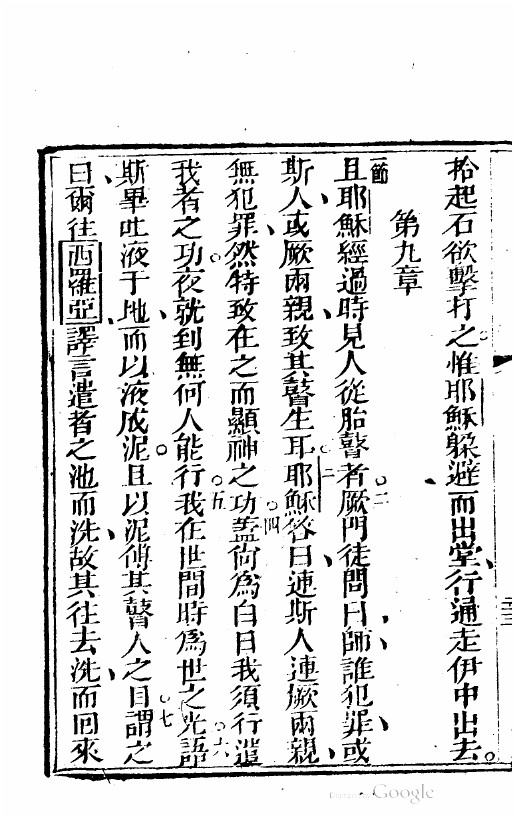 拾起石欲擊打之。惟耶穌躲避而出堂、行通走伊中出去。
第九章
一節 且耶穌經過時、見人從胎瞽者。二厥門徒問曰、師、誰犯罪、或
斯人、或厥兩親、致其瞽生耳。三耶穌答曰、連斯人連厥兩親、
無犯罪。然特致在之而顯神之功。四蓋尙爲白日、我須行遣
我者之功、夜就到、無何人能行。五我在世間時、爲世之光。六語
斯畢、吐液于地、而以液成泥、且以泥傅其瞽人之目。七謂之
曰、爾往西羅亞、譯言遣者之池而洗、故其往去洗、而回來
Digitized by Google